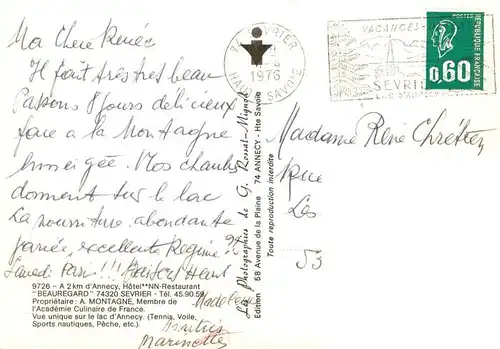 Ma Chère Renée
Il fait très très beau
Passons 8 jours délicieux
face à la Montagne
enneigée. Nos chambres
donnent sur le lac
La nourriture abondante
variée, excellente Régime
Samedi Paris !!!
9726 - A 2 km d'Annecy, Hôtel**NN-Restaurant
"BEAUREGARD" 74320 SEVRIER - Tél. 45.90.59
Propriétaire : A. MONTAGNE, Membre de
l'Académie Culinaire de France.
Vue unique sur le lac d'Annecy. (Tennis, Voile,
Sports nautiques, Pêche, etc.)
Madeleine
Amitiés
Marinette
La Photographies de G. Rossat-Mignot
Edition 58 Avenue de la Plaine 74 ANNECY - Hte Savoie
Toute reproduction interdite
74 SEVRIER
1976
HAUTE SAVOIE
VACANCES
SEVRIER
LAC D'ANNECY
POSTES
REPUBLIQUE FRANÇAISE
0,60
Madame René Chrétien
Rue
Les
53